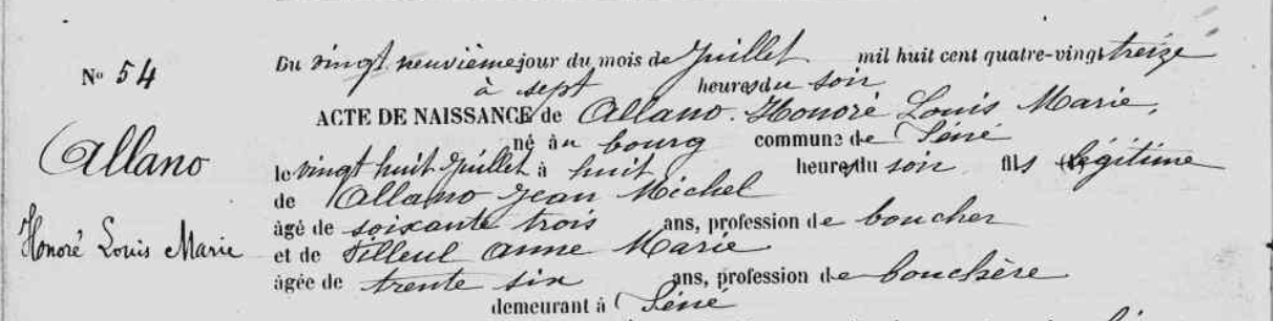 N° 54
Allano
Honoré Louis Marie
Du vingt neuvième jour du mois de Juillet mil huit cent quatre-vingt treize
à sept heures du soir
ACTE DE NAISSANCE de Allano Honoré Louis Marie,
né au bourg commune de Séné
le vingt huit Juillet à huit heures du soir fils légitime
de Allano Jean Michel
âgé de soixante trois ans, profession de boucher
et de Tilleul Anne Marie
âgée de trente six ans, profession de bouchère
demeurant à Séné